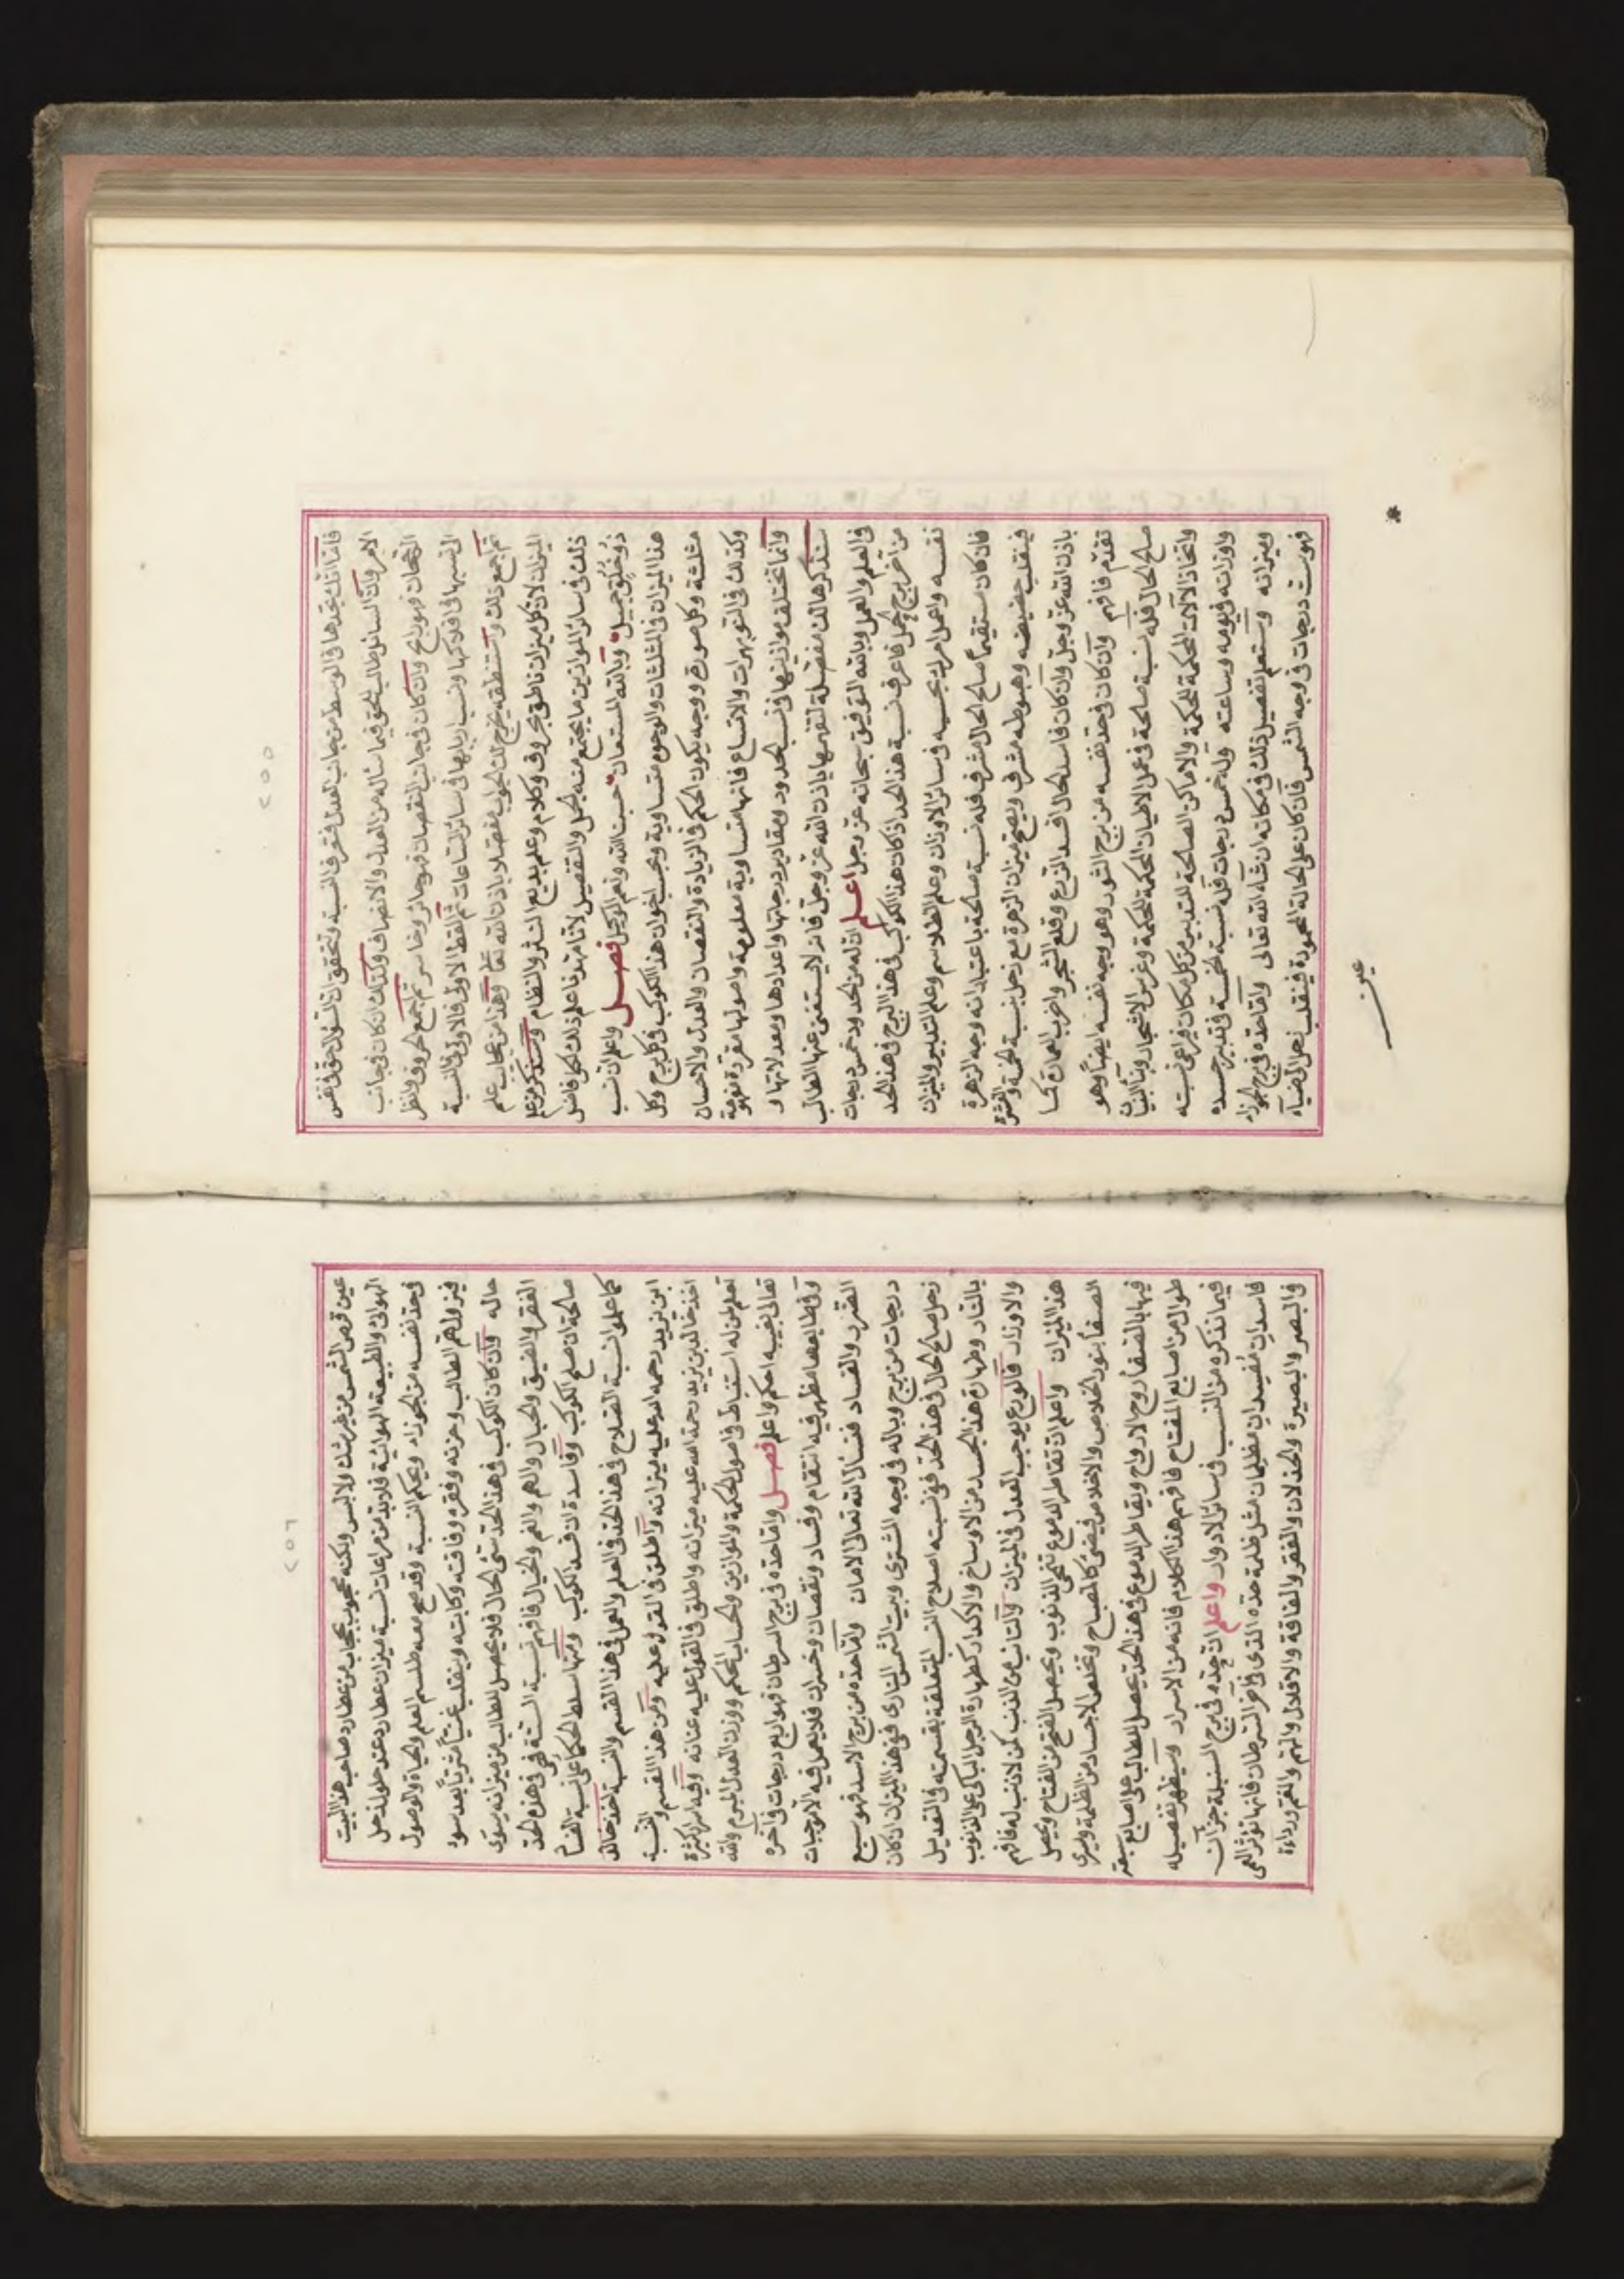 ٢٥٥
فاما انك تجدها في الوسط من جانب العدل فتعرف النسبة وتحقق ان السؤال حق في نفس
الامر وان السائل طالب للحق فيما سأله من العدل والانصاف وكذلك ان كان في جانب
الرجحان فهو رابح وان كان في جانب النقصان فهو جائر وخاسر ثم تجمع الحروف وانظر
الى نسبها في افلاكها ونسب اربابها في سائر الساعات ثم القط الاولى فالاولى في النسبة
ثم اجمع ذلك واستنطقه يخرج لك الجواب مفصلا باذن الله تعالى وهذا من عجائب علم
الميزان لان كل ميزان ناطق بحروف وكلام وعلم بديع النثر والنظام وسنذكر من علم
ذلك في سائر الموازين ما يجتمع منه الجمل والتفصيل لاننا مهدنا علم ذلك لكل فاضل
ذو خلق جميل وبالله المستعان حسبنا الله ونعم الوكيل فصل واعلم ان نسب
هذا الميزان في المثلثات والوجوه متساوية وبحسب اخوان هذا الكوكب في كل برج وكل
مثلثة وكل صورة ووجه يكون الحكم في الزيادة والنقصان والعدل والاحسان
وكذلك في النوبهرات والاتساع فانها متساوية معلومة واصولها مقررة مفهومة
وانما تختلف موازينها في نسب الحدود ومقادير درجاتها واعدادها ومعدلاتها و
سنذكرها لك مفصلة لتفهمها باذن الله عز وجل فانه لا يستغنى عنها الطالب
في العلم والعمل وبالله التوفيق سبحانه عز وجل اعلم ان له من الحدود خمس درجات
من آخر برج الحمل فاعرف نسبة هذا الحد اذا كان هذا الكوكب في هذا البرج في هذا الحد
نفسه واعمل امرك بحسبه في سائر الاوزان وعلم الطلاسم وعلم التدبير والميزان
فان كان مستقيما صالح الحال مشرف فله نسبة صالحة باعتبار انه وجه الزهرة
فينقلب حضيضه وهبوطه مشرف ويصح ميزان الزهرة مع زحل بنسبة الخمسة والعشرة
باذن الله عز وجل وان كان فاسد الحال افسد الزرع وقلع الشجر واخرب العمارة كما
تقدم فافهم وان كان في حد نفسه من برج الثور وهو وجه نفسه ايضا وهو
صالح الحال فله نسبة صالحة في عمل الاطيان الحكمة للحكمة وغرس الاشجار وبناء البنيان
واتخاذ الآلات المحكمة للحكمة والاماكن الصالحة للتدبير من كل مكان فراعي نسبته
واوزانه في يومه وساعته وله خمس درجات فله نسبة الخمسة في تدبير جسده
وميزانه وستعلم تفصيل ذلك في مكانه ان شاء الله تعالى واما حده في برج الجوزاء
فهو ست درجات في وجه الشمس فان كان على الحالة المحمودة فينقلب زحل الى ضياء
عين
٢٥٦
عين قرص الشمس من غير شك ولا لبس ولكنه محجوب بحجاب من عطارد صاحب هذا البيت
الهوائي والطبيعة الهوائية فلا بد من مراعات نسبة ميزان عطارد عند حلول زحل
في حد نفسه من الجوزاء ويحكم النسبة وقد صح معه طلسم العلم والحياة والوصول
فيزول هم الطالب وحزنه وفقره وفاقته وكآبته وينقلب غنيا مثريا بعد سوء
حاله وان كان الكوكب في هذا الحد سئ الحال فلا يحصل للطالب من ميزانه سوى
الفقر والضيق والخبال والهم والغم والخيال فافهم نسبة الستة فهي في هذه الحد
صالحة ان صلح الكوكب وفاسدة ان فسد الكوكب ومنها سلط الحكماء على نسبة الفساد
كما عملوا نسبة الصلاح في هذا الحد في العلم والعمل في هذا القسم والنسبة اخذ خالد
ابن يزيد رحمه الله عليه ميزانه واطلق في القول عليه ومن هذا القسم والنسبة
اخذ خالد بن يزيد رحمة الله عليه ميزانه واطلق في القول عليه عنانه وفيه اسرار كثيرة
تعلم لمن له استنباط في اصول الحكمة والموازين والحساب المحكم ووزن العدل المبرم والله
تعالى بغيبه احكم واعلم فصل واما حده في برج السرطان فهو اربع درجات في آخره
وفي طابعها مظهر فيه انتقام وفساد ونقصان وخسران فلا يعمل فيه الا موجبات
الضرر والفساد فنسأل الله تعالى الامان واما حده من برج الاسد فهو سبع
درجات من برج وباله في وجه المشترى وبيت الشمس الناري ففي هذا الميزان ان كان
زحل صالح الحال في هذا الحد ففي نسبته اصلاح النسب المتعلقة بقسمته في التعديل
بالنار وطهارة هذا الجسد من الاوساخ والاكدار كطهارة الرجل الباكي على الذنوب
والاوزار فالورع يوجب العدل في الميزان والتائب من الذنب كمن لا ذنب له فافهم
هذا الميزان واعلم ان تقاطر الدموع تنقي الذنوب ويحصل الفتح من الفتاح ويحصل
الصفا بنور الخلاص والاخلاص فيضئ كالمصباح وتخلص الاجساد من الظلمة ويرى
فيها بالصفا روح الارواح وبتقاطر الدموع في هذا الحد يحصل للطالب على اصابع سبعة
طوال من اصابع المفتاح فافهم هذا الكلام فانه من الاسرار وسيظهر تفصيله
فيما نذكره من النسب في سائر الادوار واعلم ان حده في برج السنبلة جزآن
فاسدان مفسدان مظلمان مثل ظلمة حده الذي في آخر السرطان فانها تؤثر العمى
في البصر والبصيرة والخذلان والفقر والفاقة والاقلال والهم والغم ورداءة